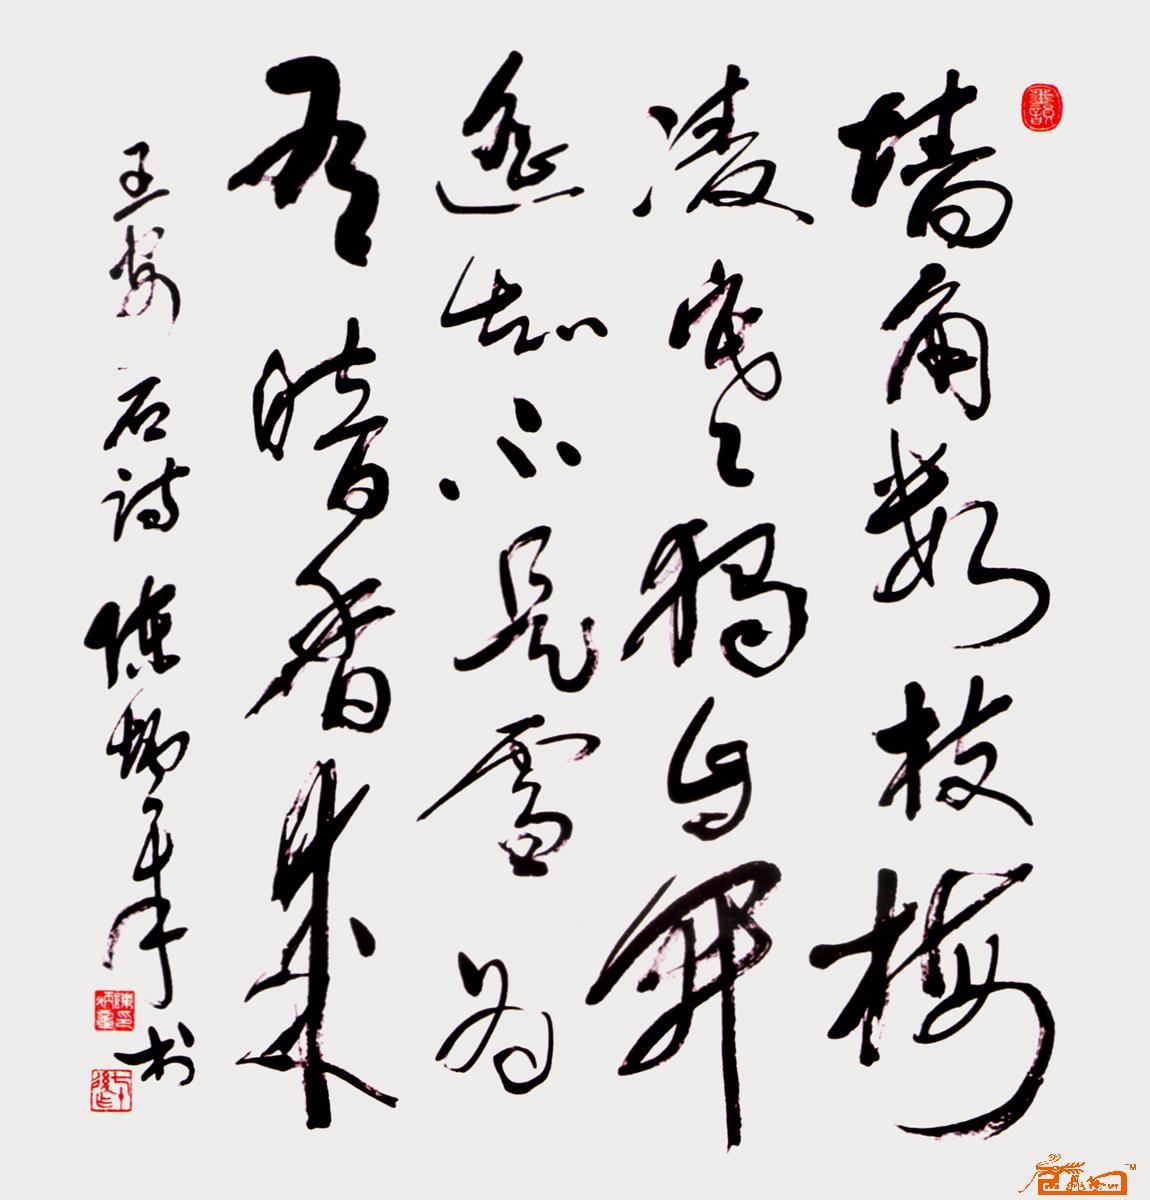 墙角数枝梅
凌寒独自开
遥知不是雪为
有暗香来
王安石诗 陈炳